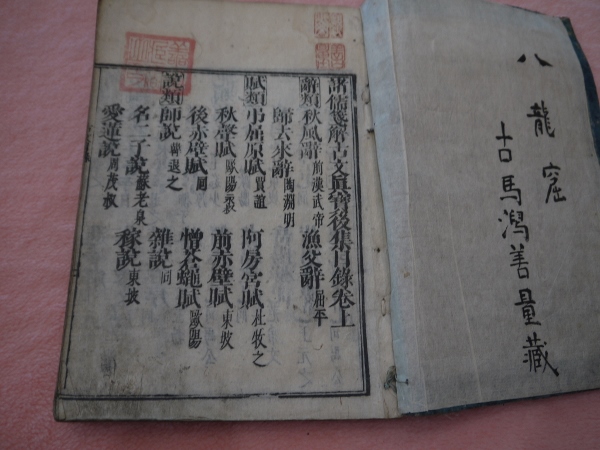 八龍窟
古馬瀉善量藏
諸儒箋解古文眞寶後集目錄卷上
辭類 秋風辭 前漢武帝 漁父辭 屈平
歸去來辭 陶淵明
賦類 弔屈原賦 賈誼 阿房宮賦 杜牧之
秋聲賦 歐陽 前赤壁賦 東坡
後赤壁賦 同 憎蒼蠅賦 歐陽
說類 師說 韓退之 雜說 同
名二子說 蘇老泉 稼說 東坡
愛蓮說 周茂叔